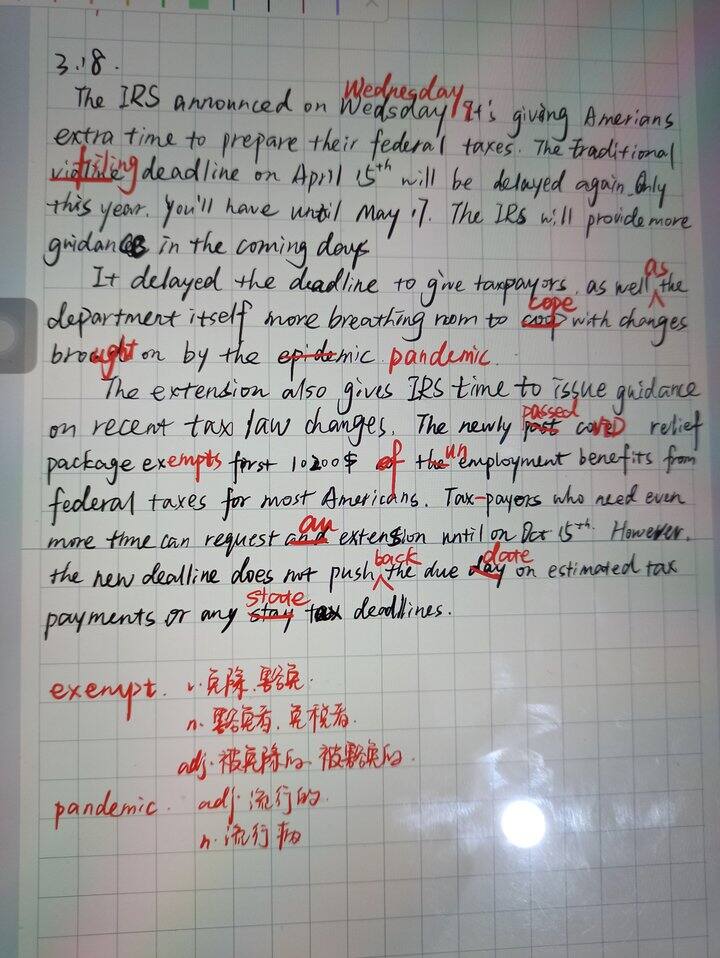 3.18.
The IRS announced on Wedsday Wednesday It's giving Amerians
extra time to prepare their federal taxes. The traditional
filing deadline on April 15th will be delayed again. Only
this year. you'll have until May 17. The IRS will provide more
guidance in the coming days
It delayed the deadline to give taxpayors, as well as the
department itself more breathing room to coop cope with changes
brought on by the epidemic pandemic.
The extension also gives IRS time to issue guidance
on recent tax law changes. The newly past passed coVID relief
package exempts first 10200$ of the unemployment benefits from
federal taxes for most Americans. Tax-payors who need even
more time can request and an extension until on Oct 15th. However,
the new dealline does not push back the due day date on estimated tax
payments or any stay state tax deadlines.
exempt. v. 免除、豁免.
n. 豁免者、免税者.
adj. 被免除的、被豁免的.
pandemic. adj. 流行的.
n. 流行病